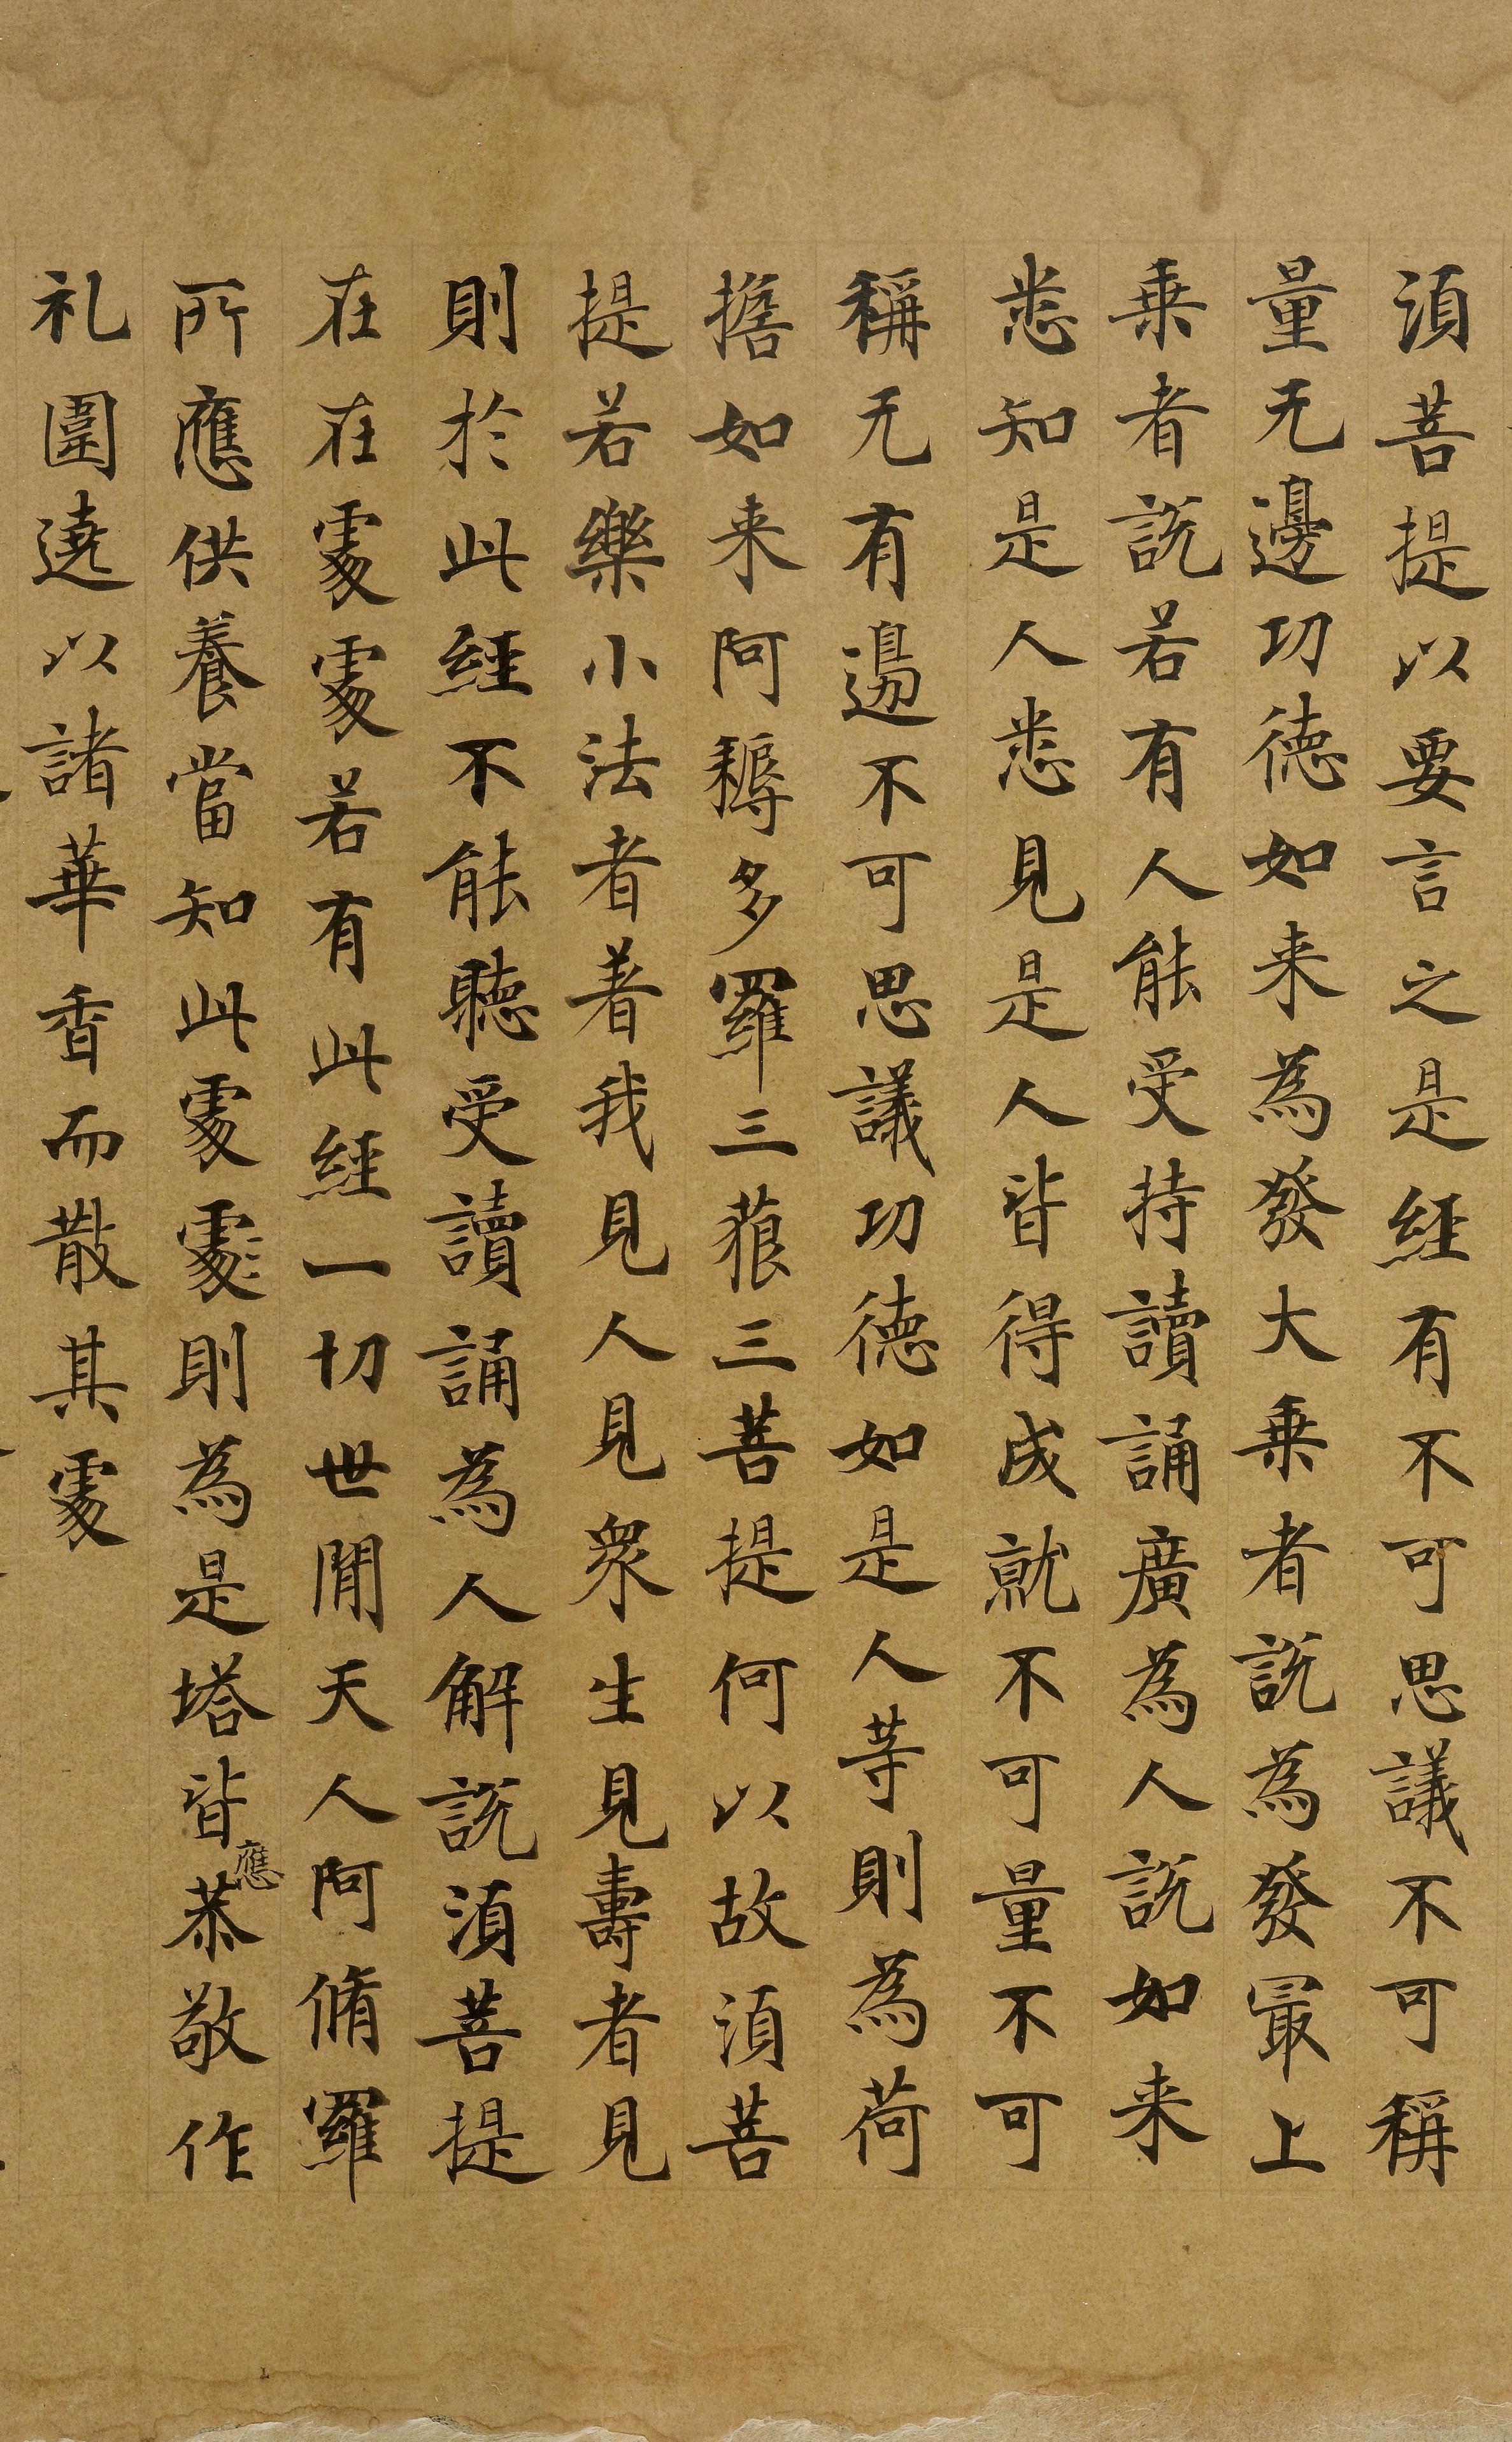 須菩提以要言之是経有不可思議不可稱
量无邊功德如来為發大乗者説為發冣上
乗者説若有人能受持讀誦廣為人説如来
悉知是人悉見是人皆得成就不可量不可
稱无有邊不可思議功德如是人等則為荷
擔如来阿耨多羅三藐三菩提何以故須菩
提若樂小法者著我見人見衆生見壽者見
則於此経不能聽受讀誦為人解説須菩提
在在處處若有此経一切世閒天人阿脩羅
所應供養當知此處處則為是塔皆應恭敬作
礼圍遶以諸華香而散其處